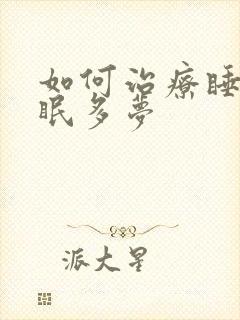 如何治療睡
眠多夢
派大星